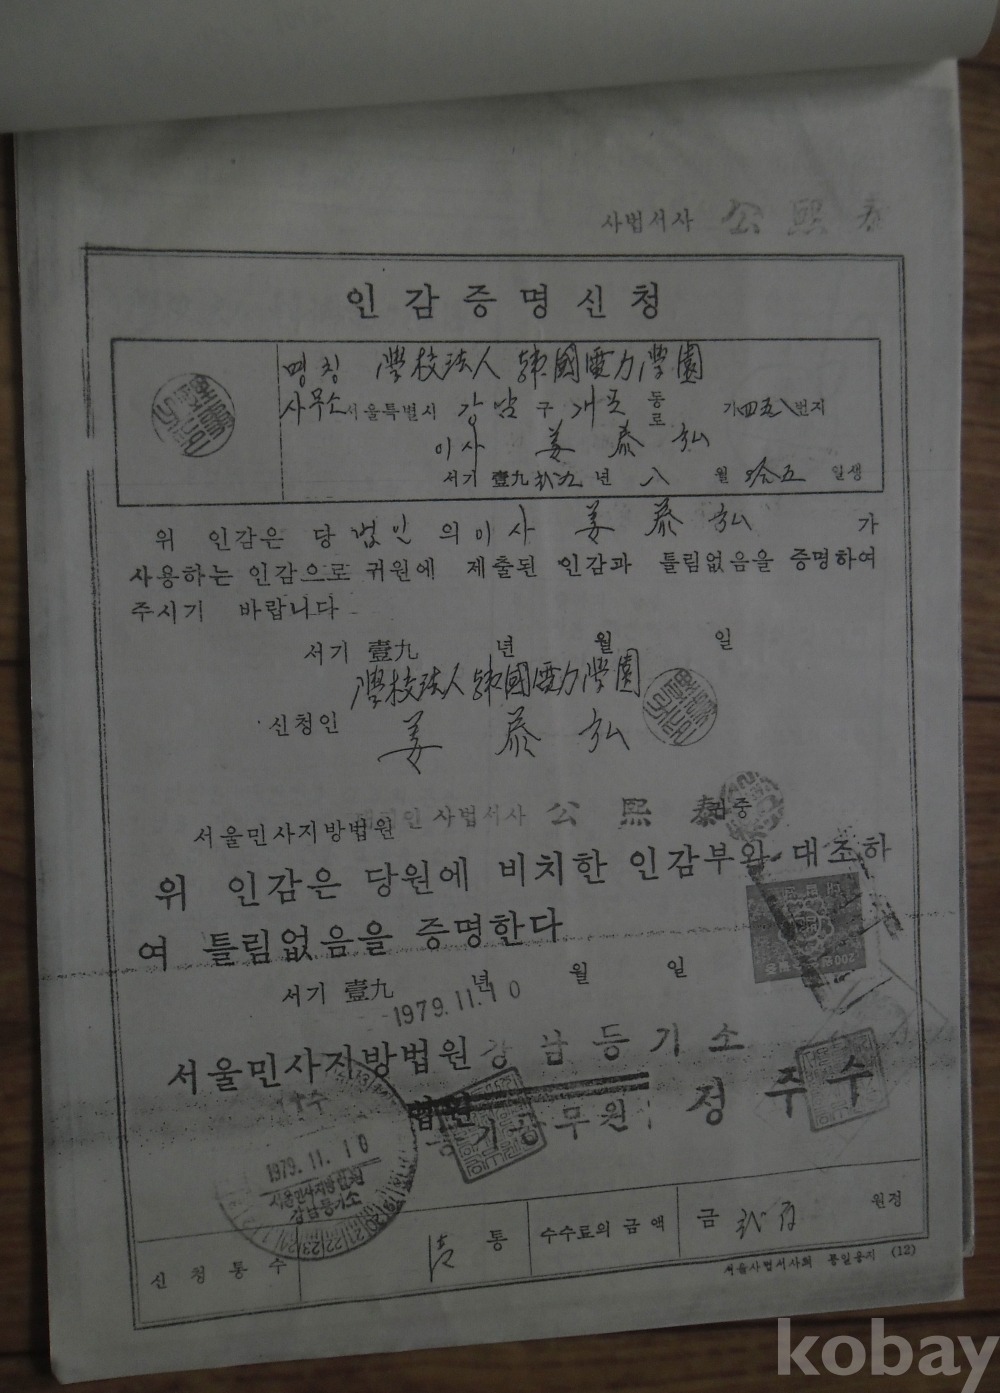 사법서사 公熙泰
인감증명신청
명칭 學校法人 韓國電力學園
사무소 서울특별시 강남구 개포동 四五八번지
이사 姜泰弘
서기 壹九 年 八 월 拾五 일생
위 인감은 당 법인 의 이사 姜泰弘 가
사용하는 인감으로 귀원에 제출된 인감과 틀림없음을 증명하여
주시기 바랍니다
서기 壹九 년 월 일
學校法人 韓國電力學園
신청인 姜泰弘
사법서사 公熙泰
서울민사지방법원 귀중
위 인감은 당원에 비치한 인감부와 대조하
여 틀림없음을 증명한다
서기 壹九 년 월 일
1979.11.10
서울민사지방법원 강남등기소
법원
등기공무원 정주수
접수
1979.11.10
서울민사지방법원
강남등기소
신청통수 통 수수료의 금액 금 원정
서울사법서사회 통일용지 (12)
kobay